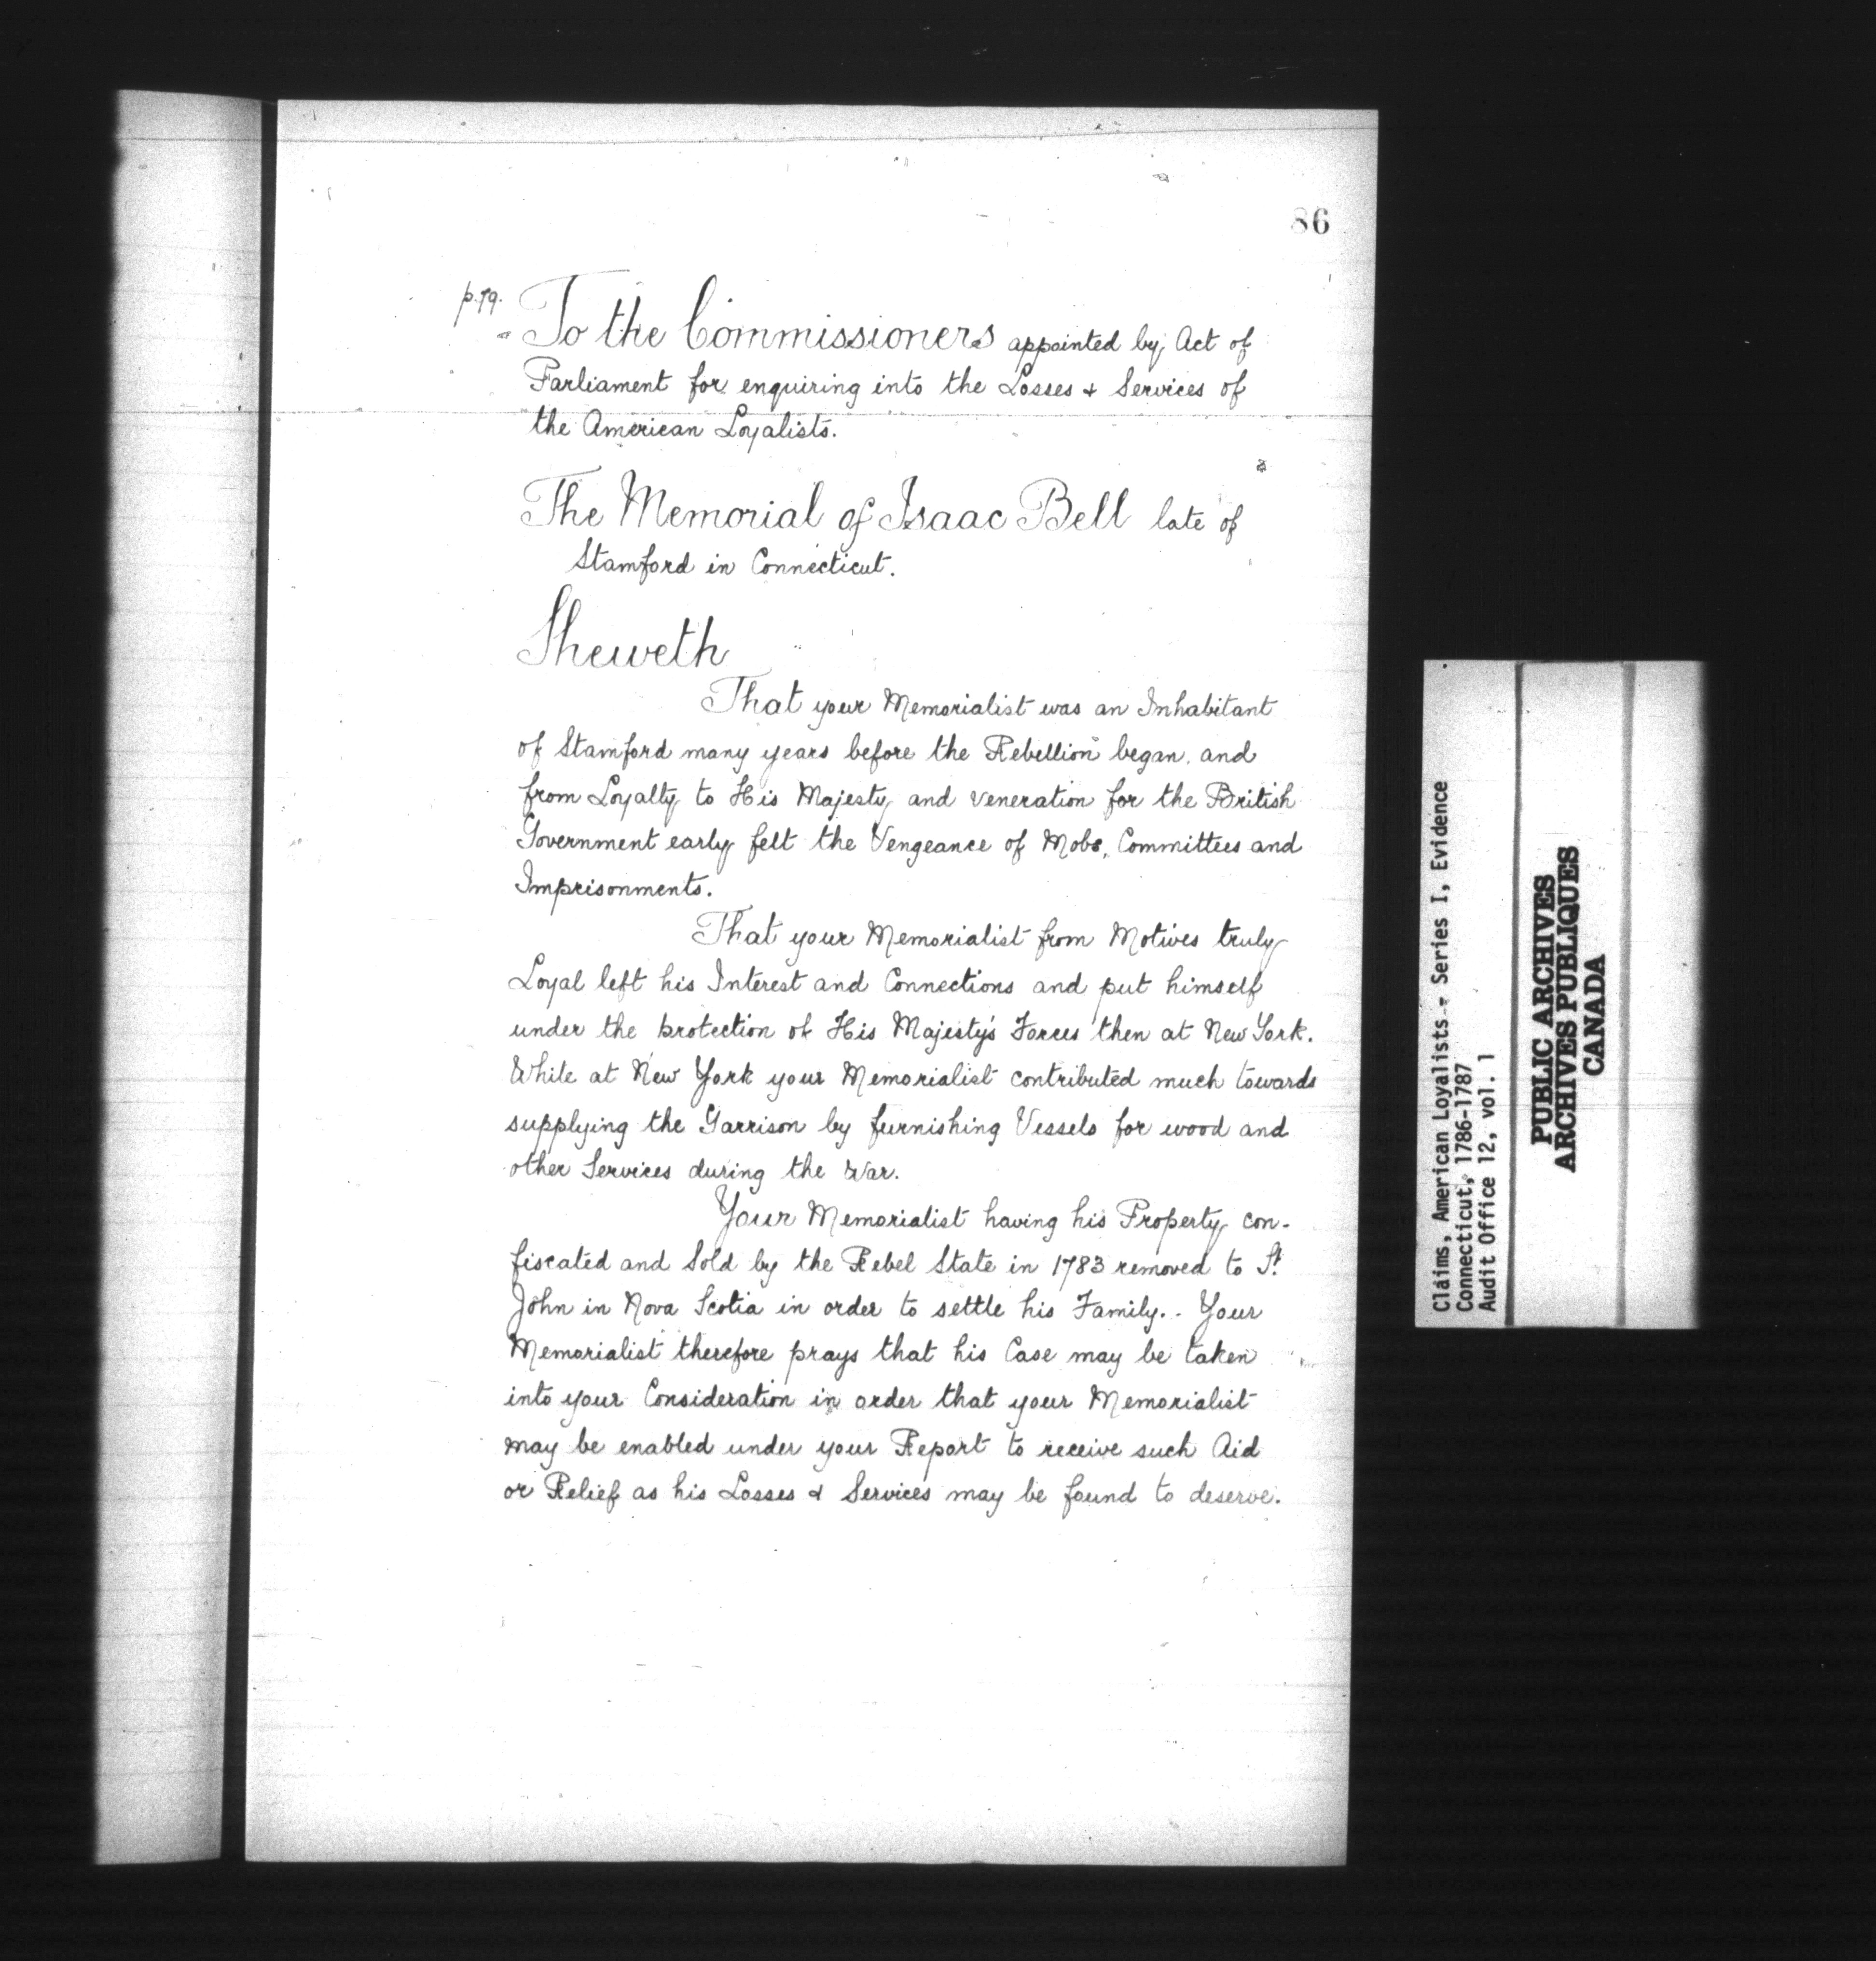 86
p. 79.
To the Commissioners appointed by Act of
Parliament for enquiring into the Losses & Services of
the American Loyalists.
The Memorial of Isaac Bell late of
Stamford in Connecticut.
Sheweth
That your Memorialist was an Inhabitant
of Stamford many years before the Rebellion began. and
from Loyalty to His Majesty and veneration for the British
Government early felt the Vengeance of Mobs, Committees and
Imprisonments.
That your Memorialist from Motives truly
Loyal left his Interest and Connections and put himself
under the protection of His Majesty's Forces then at New York.
While at New York your Memorialist contributed much towards
supplying the Garrison by furnishing Vessels for wood and
other Services during the War.
Your Memorialist having his Property con-
fiscated and Sold by the Rebel State in 1783 removed to St.
John in Nova Scotia in order to settle his Family. - Your
Memorialist therefore prays that his Case may be taken
into your Consideration in order that your Memorialist
may be enabled under your Report to receive such Aid
or Relief as his Losses & Services may be found to deserve.
Claims, American Loyalists - Series I, Evidence
Connecticut, 1786-1787
Audit Office 12, vol. 1
PUBLIC ARCHIVES
ARCHIVES PUBLIQUES
CANADA